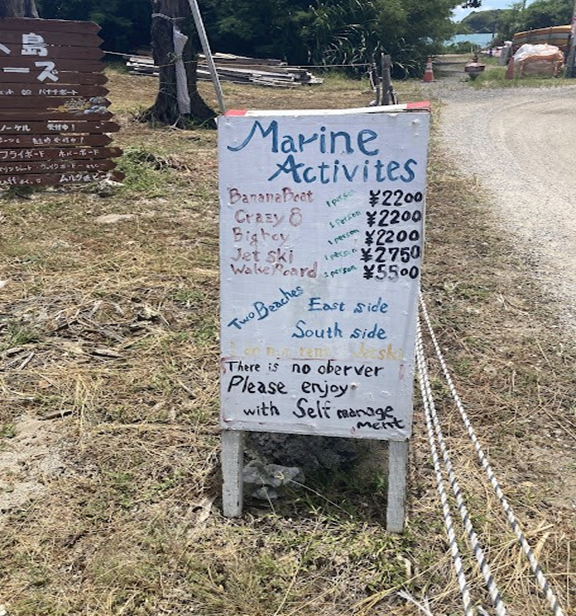 島
ーズ
バナナボート
ノーケル 受付中!
フライボード ホバーボード
Marine
Activites
BananaBoat 1 person ¥2200
Crazy 8 1 person ¥2200
Bigboy 1 person ¥2200
Jet ski 1 person ¥2750
WakeBoard 1 person ¥5500
Two Beaches East side
South side
There is no oberver
Please enjoy
with Self manage
ment